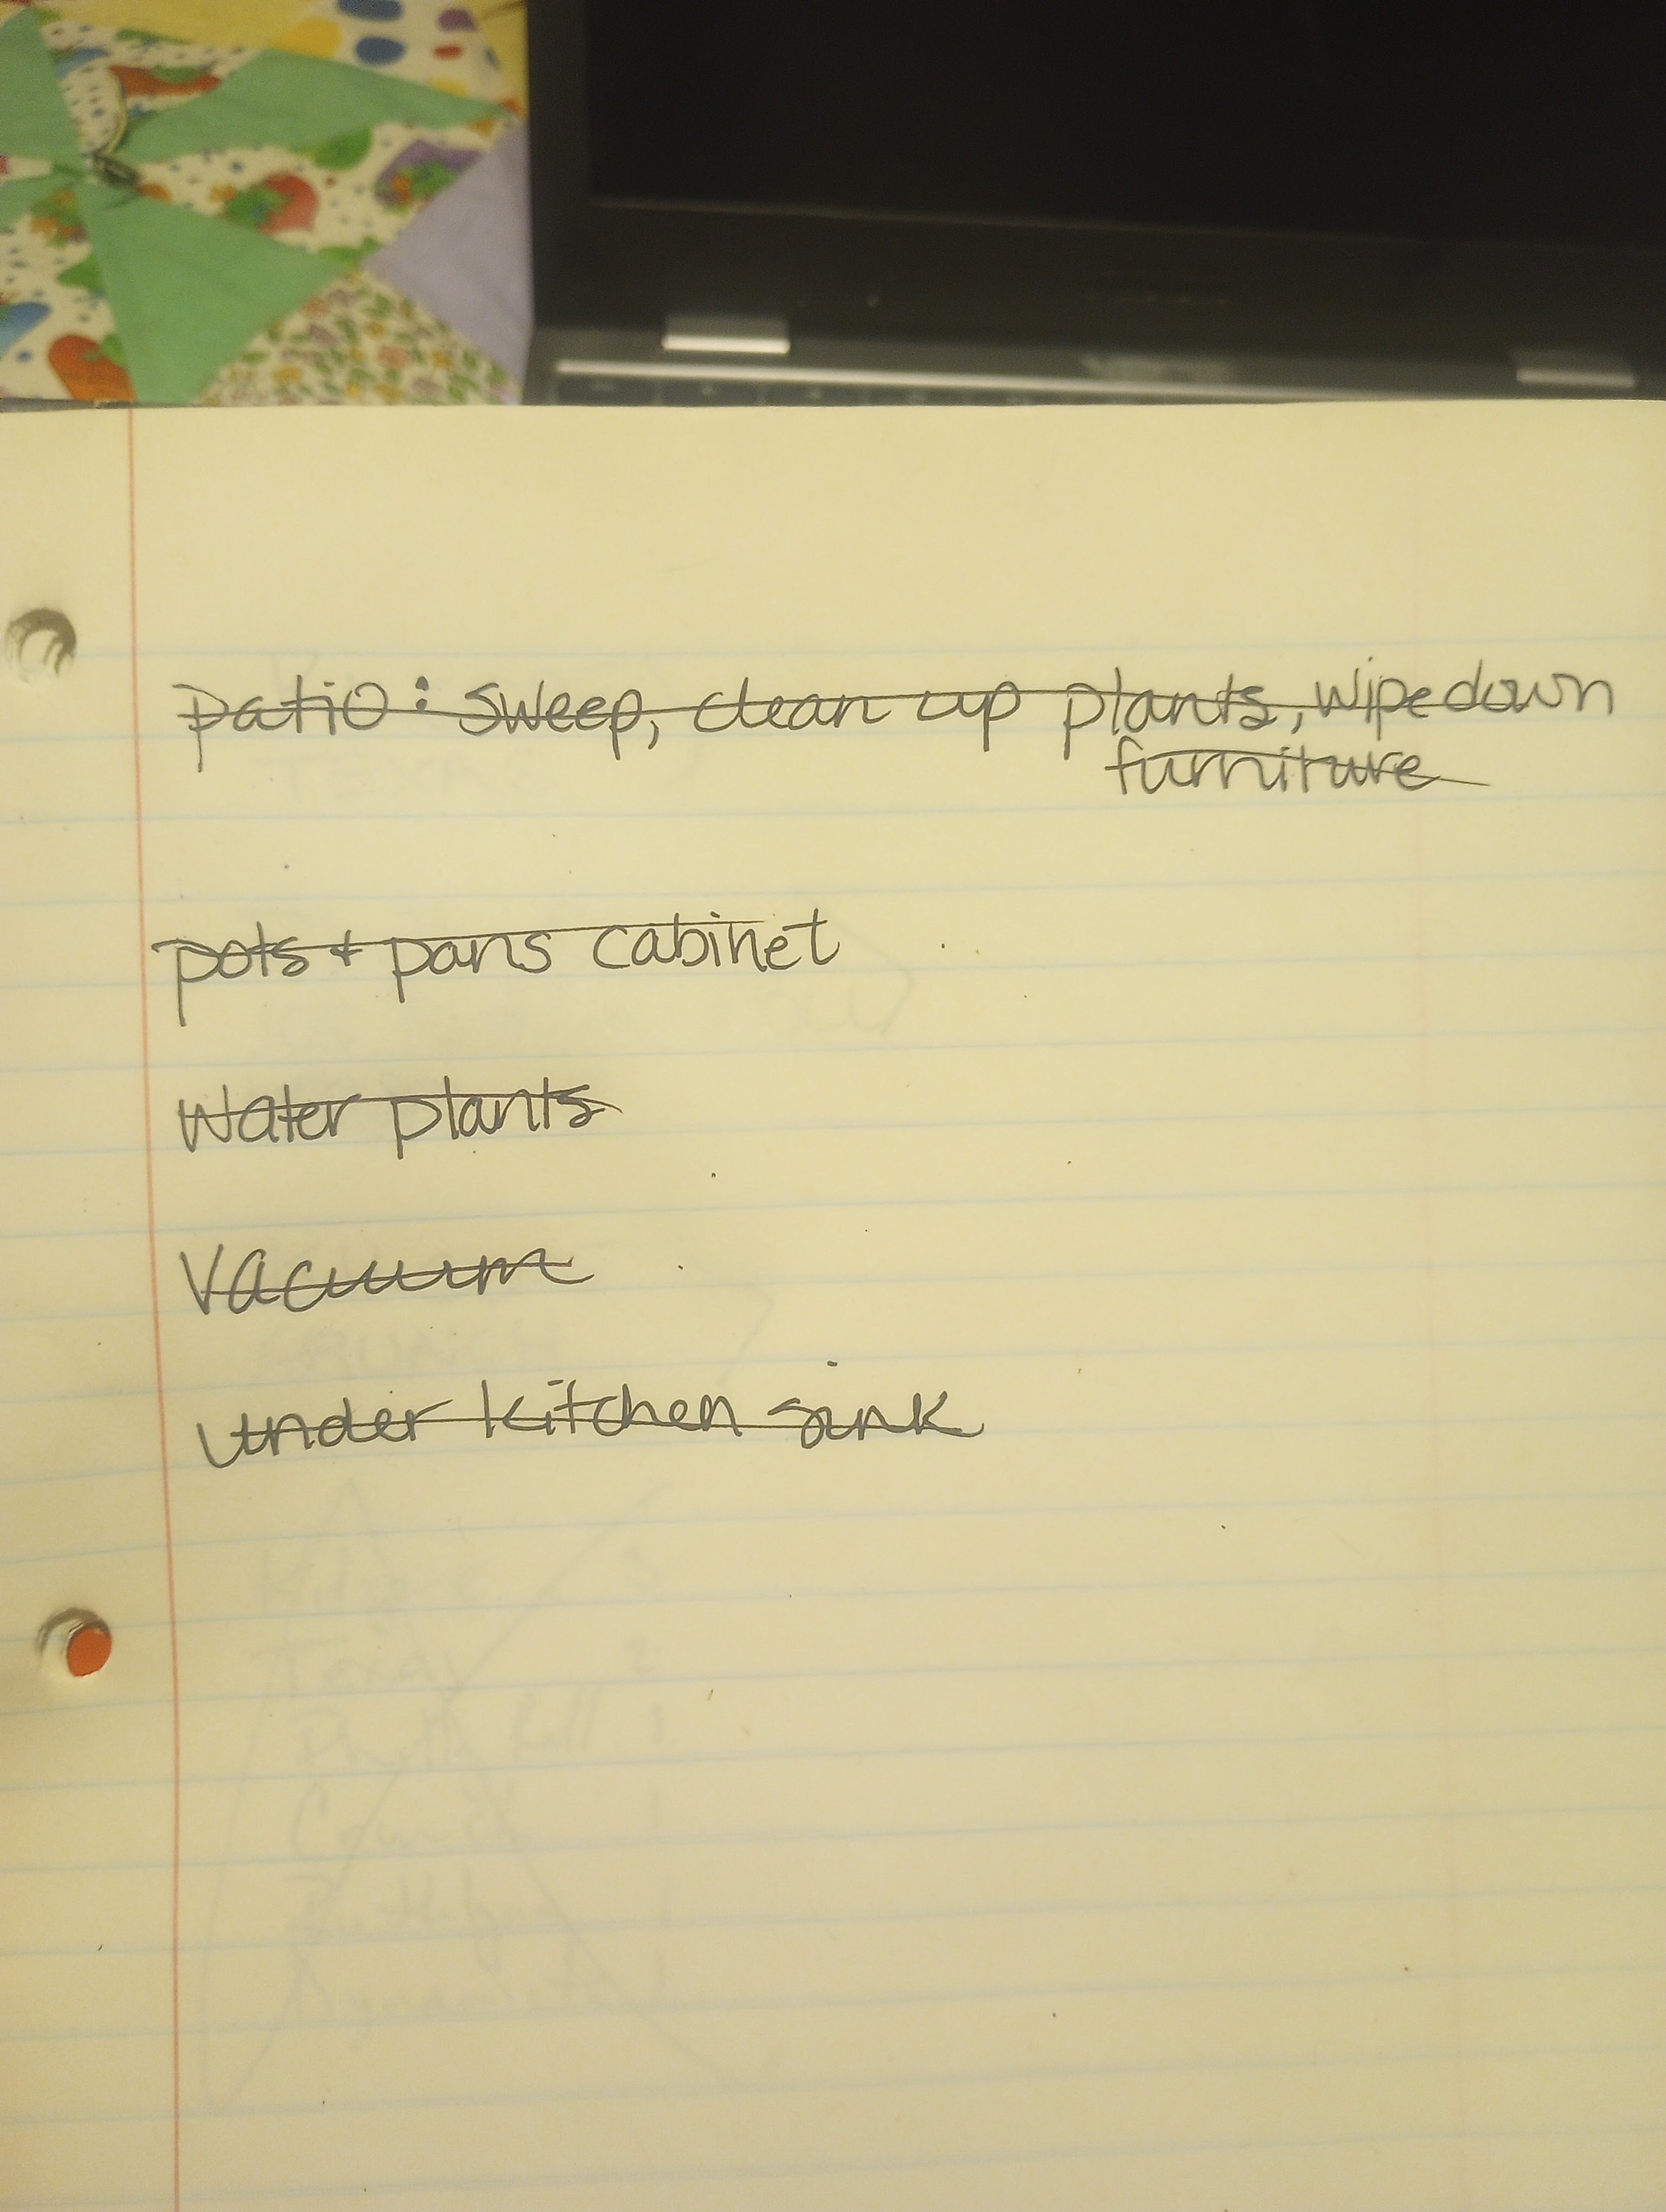 patio: sweep, clean up plants, wipe down
furniture
pots + pans cabinet
water plants
vacuum
under kitchen sink